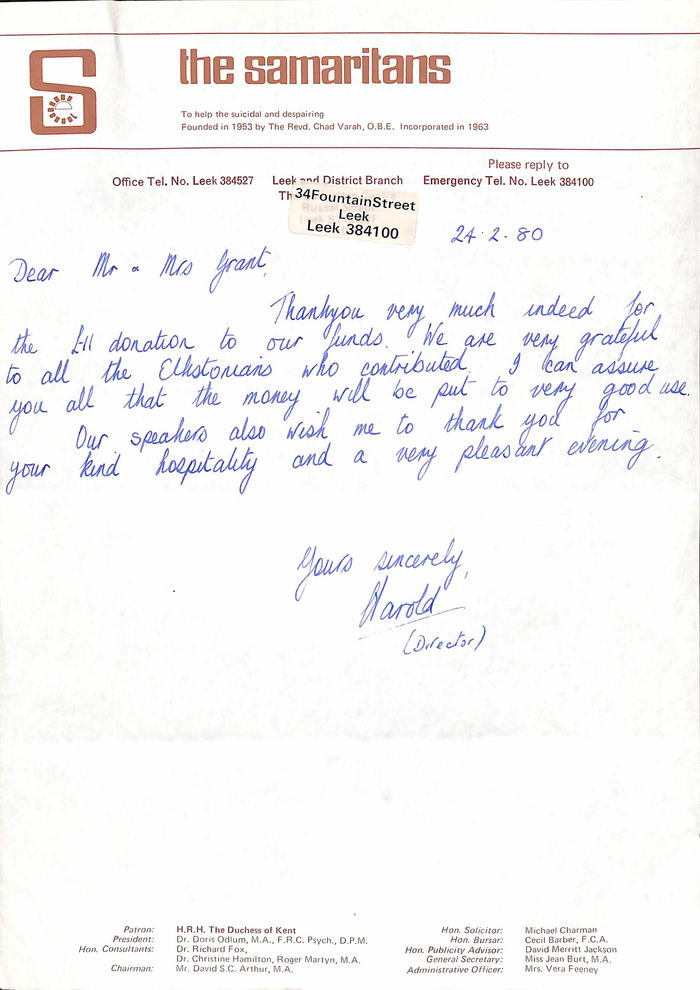 the samaritans
To help the suicidal and despairing
Founded in 1953 by The Revd. Chad Varah, O.B.E. Incorporated in 1963
Please reply to
Office Tel. No. Leek 384527 Leek and District Branch Emergency Tel. No. Leek 384100
Th
34FountainStreet
Leek
Leek 384100
24.2.80
Dear Mr & Mrs Grant,
Thankyou very much indeed for
the £11 donation to our funds. We are very grateful
to all the Elkstonians who contributed. I can assure
you all that the money will be put to very good use.
Our speakers also wish me to thank you for
your kind hospitality and a very pleasant evening.
Yours sincerely,
Harold
(Director)
Patron: H.R.H. The Duchess of Kent
President: Dr. Doris Odlum, M.A., F.R.C. Psych., D.P.M.
Hon. Consultants: Dr. Richard Fox,
Dr. Christine Hamilton, Roger Martyn, M.A.
Chairman: Mr. David S.C. Arthur, M.A.
Hon. Solicitor: Michael Charman
Hon. Bursar: Cecil Barber, F.C.A.
Hon. Publicity Advisor: David Merritt Jackson
General Secretary: Miss Jean Burt, M.A.
Administrative Officer: Mrs. Vera Feeney